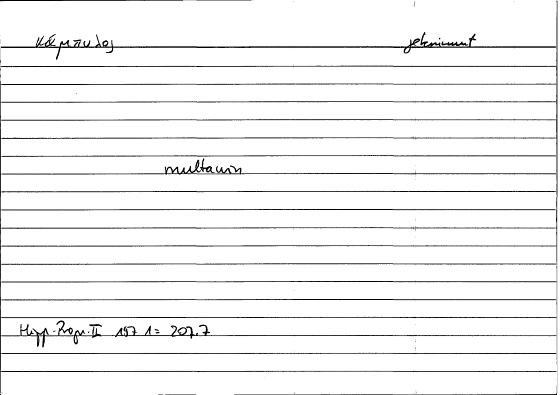 κάμπυλος gekrümmt
multawin
Hipp. Progn. II 157 1 = 207.7